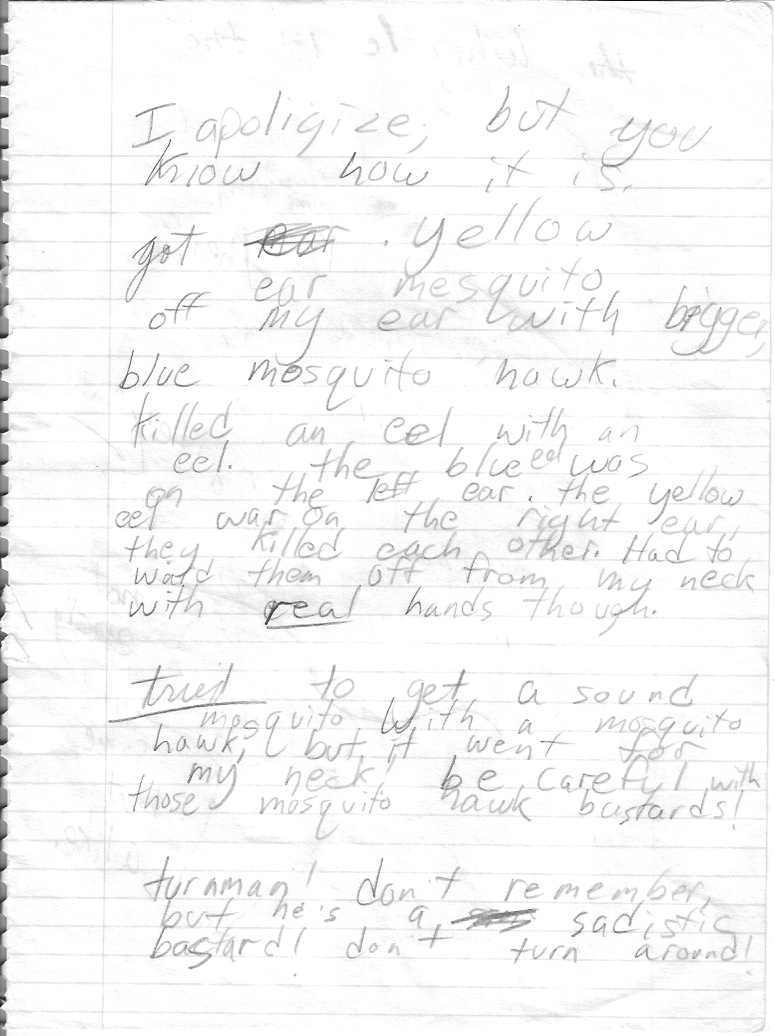 I apoligize, but you
know how it is.
got . yellow
ear mesquito
off my ear with bigger,
blue mosquito hawk.
killed an eel with an
eel. the blue eel was
on the left ear. the yellow
eel war on the right ear,
they killed each other. Had to
ward them off from my neck
with real hands though.
tried to get a sound
mosquito with a mosquito
hawk, but it went for
my neck! be careful with
those mosquito hawk bastards!
turnman! don't remember,
but he's a sadistic
bastard! don't turn around!